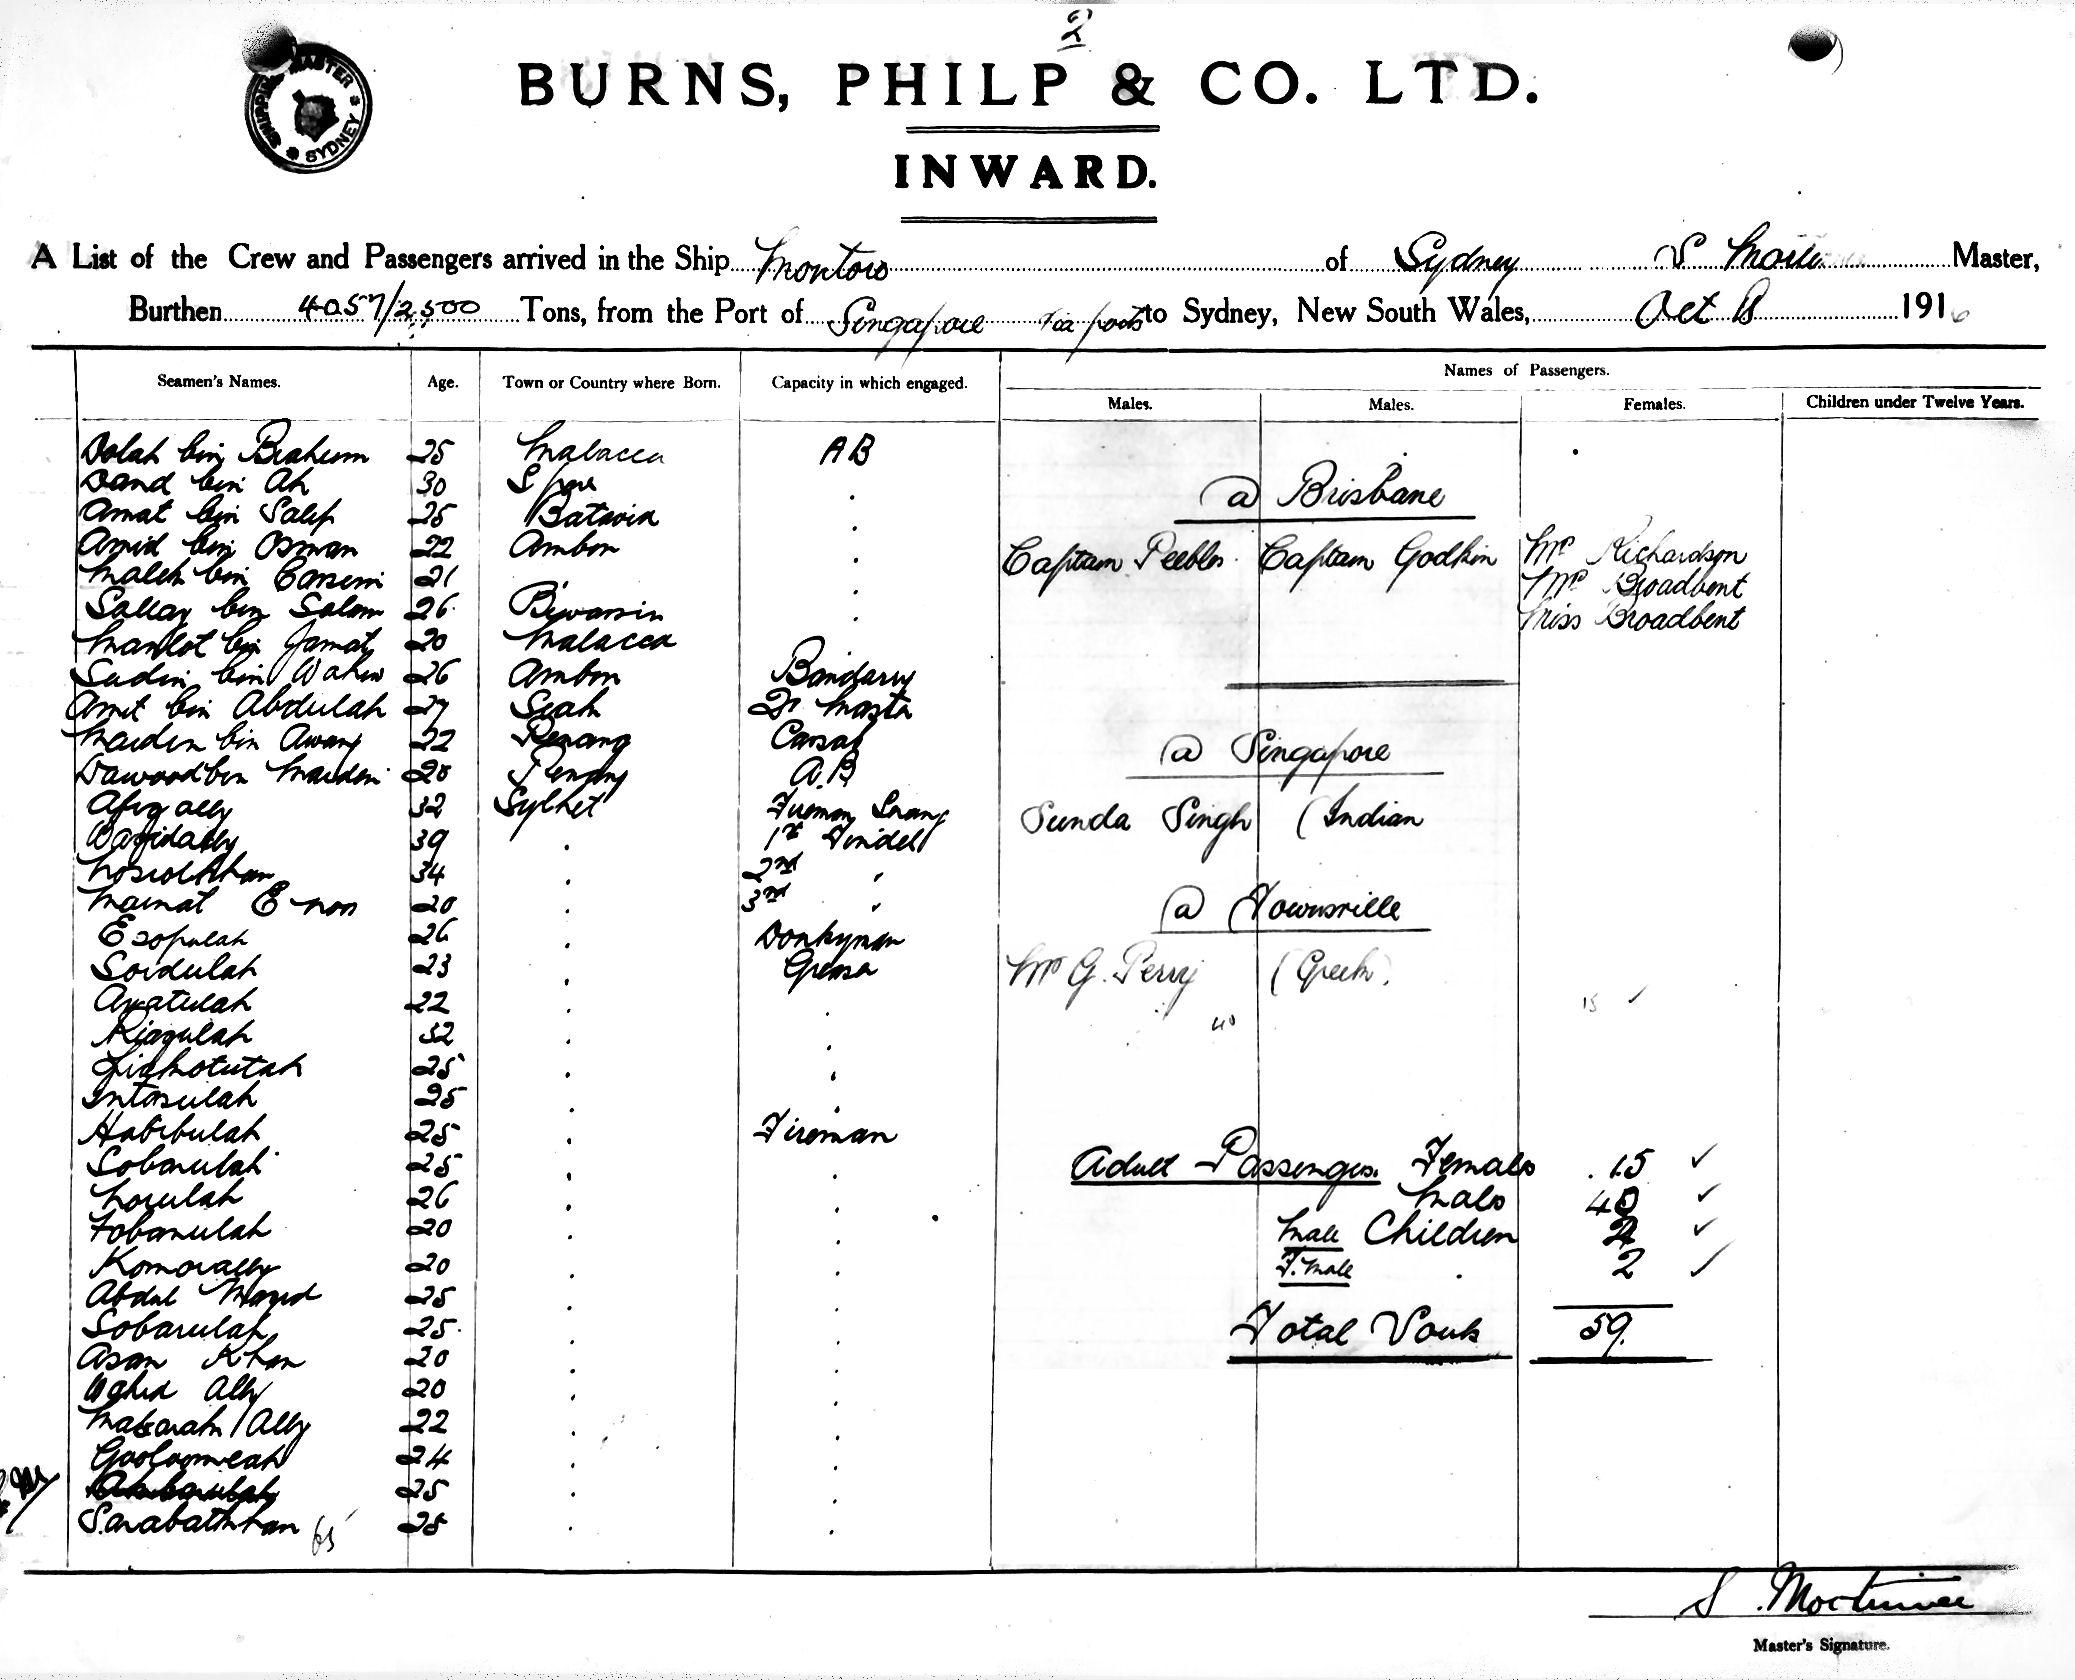 2
SHIPPING MASTER
SYDNEY
BURNS, PHILP & CO. LTD.
INWARD.
A List of the Crew and Passengers arrived in the Ship Montoro of Sydney S Master,
Burthen 4057/2,500 Tons, from the Port of Singapore via ports to Sydney, New South Wales, Oct 1916
Seamen's Names. Age. Town or Country where Born. Capacity in which engaged. Names of Passengers.
Males. Males. Females. Children under Twelve Years.
Dolah bin Braheim 25 Malacca AB
Daud bin Ah 30 S'pore
Amat bin Salip 25 Batavia
Amid bin Osman 22 Ambon
Maleh bin 21
Sallay bin Salam 26
bin Jamat 20 Malacca
Sudin bin Wahid 26 Ambon Bandary
Amit bin Abdulah 27 Siah
Maidin bin Awang 22 Penang Cassab
Dawood bin Maidin 28 Penang A.B
ally 32 Sylhet Fireman
39 1st Tindel
34 2nd
Mainat 20 3rd
Esopulah 26 Donkyman
Soidulah 23 Greaser
Ayatulah 22
Riazulah 32
25
Intasulah 25
Habibulah 25 Fireman
Sobarulah 25
Norulah 26
Fobanulah 20
Komorally 20
Abdul Mazid 25
Sobarulah 25
Asan Khan 20
Wahid Ally 20
Ally 22
24
25
Sarabatkhan 25
65
@ Brisbane
Captain Peebles Captain Godkin Mrs Richardson
Mrs Broadbent
Miss Broadbent
@ Singapore
Sunda Singh (Indian
@ Townsville
Mr G. Perry (Greek).
40 15 ✓
Adult Passengers. Females 15 ✓
Males 40 ✓
Male Children 2 ✓
F.male 2 ✓
Total Souls 59.
S. Mortimer
Master's Signature.